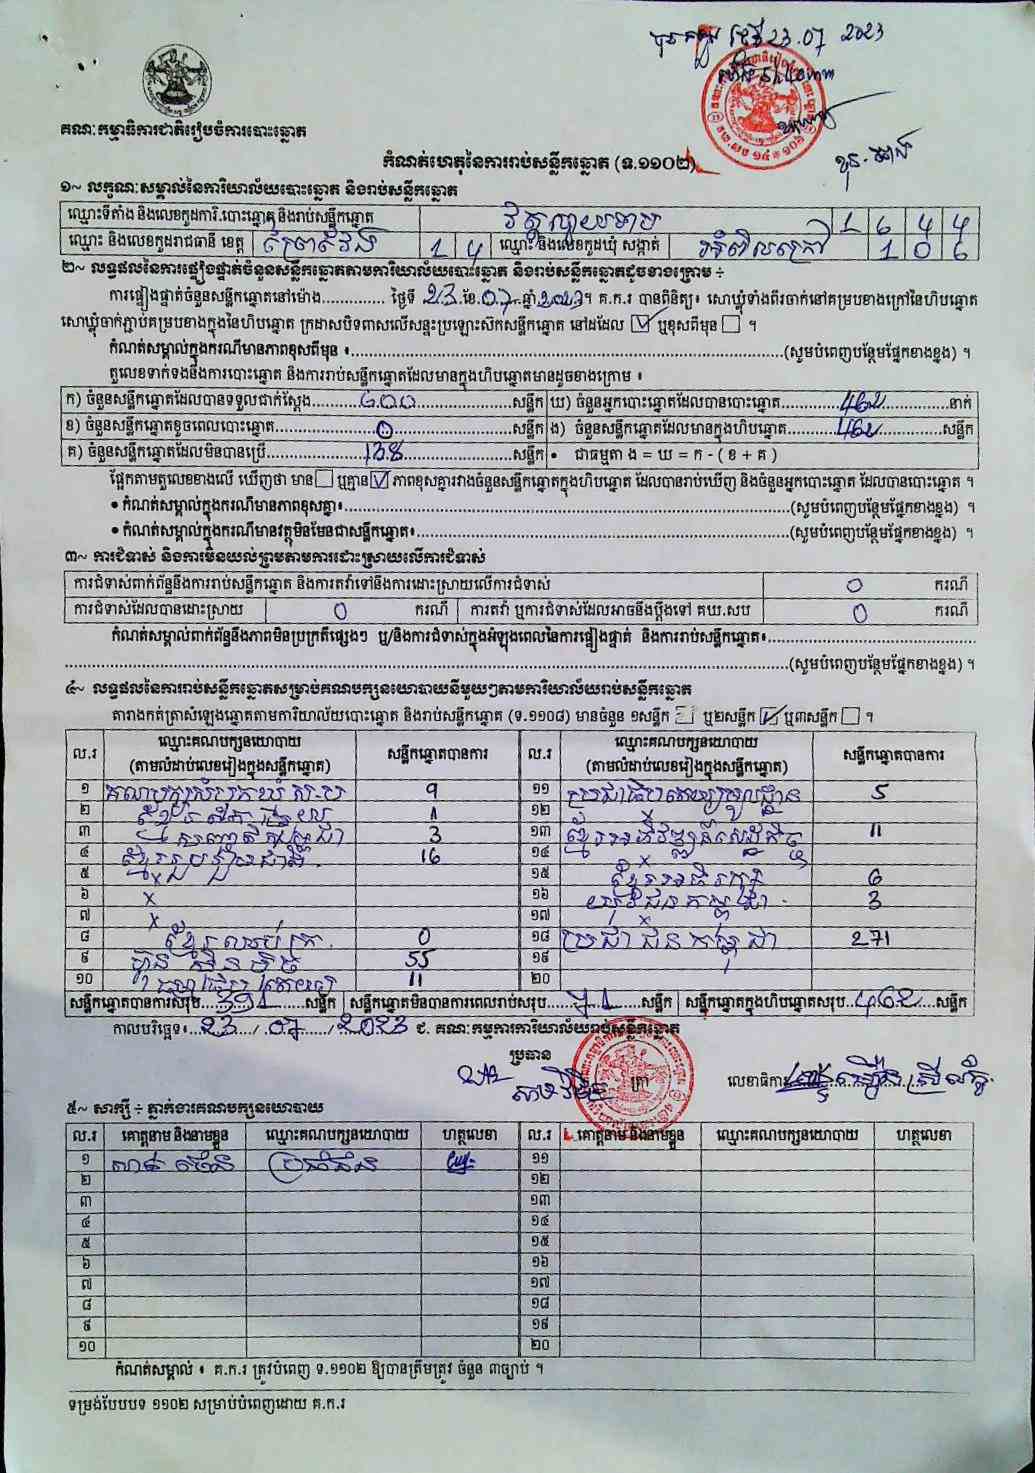 23.07 2023
គណៈកម្មាធិការជាតិរៀបចំការបោះឆ្នោត
កំណត់ហេតុនៃការរាប់សន្លឹកឆ្នោត (ទ.១១០២)
១~ លក្ខណៈសម្គាល់នៃការិយាល័យបោះឆ្នោត និងរាប់សន្លឹកឆ្នោត
ឈ្មោះទីតាំង និងលេខកូដការិ.បោះឆ្នោត និងរាប់សន្លឹកឆ្នោត 1 6 4 4
ឈ្មោះ និងលេខកូដរាជធានី ខេត្ត ព្រៃវែង 1 4 ឈ្មោះ និងលេខកូដឃុំ សង្កាត់ អំពិលក្រៅ 1 0 6
២~ លទ្ធផលនៃការផ្ទៀងផ្ទាត់ចំនួនសន្លឹកឆ្នោតតាមការិយាល័យបោះឆ្នោត និងរាប់សន្លឹកឆ្នោតដូចខាងក្រោម ÷
ការផ្ទៀងផ្ទាត់ចំនួនសន្លឹកឆ្នោតនៅម៉ោង.............. ថ្ងៃទី 23 ខែ 07 ឆ្នាំ 2023 ។ គ.ក.រ បានពិនិត្យ៖ សោឃ្លុំទាំងពីរចាក់នៅគម្របខាងក្រៅនៃហិបឆ្នោត
សោឃ្លុំចាក់ភ្ជាប់គម្របខាងក្នុងនៃហិបឆ្នោត ក្រដាសបិទពាសលើសន្ទះប្រឡោះស៊កសន្លឹកឆ្នោត នៅដដែល ☑ ឬខុសពីមុន ☐ ។
កំណត់សម្គាល់ក្នុងករណីមានភាពខុសពីមុន ៖..............(សូមបំពេញបន្ថែមផ្នែកខាងខ្នង) ។
តួលេខទាក់ទងនឹងការបោះឆ្នោត និងការរាប់សន្លឹកឆ្នោតដែលមានក្នុងហិបឆ្នោតមានដូចខាងក្រោម ៖
ក) ចំនួនសន្លឹកឆ្នោតដែលបានទទួលជាក់ស្តែង 600 សន្លឹក ឃ) ចំនួនអ្នកបោះឆ្នោតដែលបានបោះឆ្នោត 462 នាក់
ខ) ចំនួនសន្លឹកឆ្នោតខូចពេលបោះឆ្នោត 0 សន្លឹក ង) ចំនួនសន្លឹកឆ្នោតដែលមានក្នុងហិបឆ្នោត 462 សន្លឹក
គ) ចំនួនសន្លឹកឆ្នោតដែលមិនបានប្រើ 138 សន្លឹក • ជាធម្មតា ង = ឃ = ក - ( ខ + គ )
ផ្អែកតាមតួលេខខាងលើ ឃើញថា មាន ☐ ឬគ្មាន ☑ ភាពខុសគ្នារវាងចំនួនសន្លឹកឆ្នោតក្នុងហិបឆ្នោត ដែលបានរាប់ឃើញ និងចំនួនអ្នកបោះឆ្នោត ដែលបានបោះឆ្នោត ។
• កំណត់សម្គាល់ក្នុងករណីមានភាពខុសគ្នា៖..............(សូមបំពេញបន្ថែមផ្នែកខាងខ្នង) ។
• កំណត់សម្គាល់ក្នុងករណីមានវត្ថុមិនមែនជាសន្លឹកឆ្នោត៖..............(សូមបំពេញបន្ថែមផ្នែកខាងខ្នង) ។
៣~ ការជំទាស់ និងការមិនយល់ព្រមតាមការដោះស្រាយលើការជំទាស់
ការជំទាស់ពាក់ព័ន្ធនឹងការរាប់សន្លឹកឆ្នោត និងការតវ៉ាទៅនឹងការដោះស្រាយលើការជំទាស់ 0 ករណី
ការជំទាស់ដែលបានដោះស្រាយ 0 ករណី ការតវ៉ា ឬការជំទាស់ដែលអាចនឹងប្តឹងទៅ គឃ.សប 0 ករណី
កំណត់សម្គាល់ពាក់ព័ន្ធនឹងភាពមិនប្រក្រតីផ្សេងៗ ឬ/និងការជំទាស់ក្នុងអំឡុងពេលនៃការផ្ទៀងផ្ទាត់ និងការរាប់សន្លឹកឆ្នោត៖..............
..............(សូមបំពេញបន្ថែមផ្នែកខាងខ្នង) ។
៤~ លទ្ធផលនៃការរាប់សន្លឹកឆ្នោតសម្រាប់គណបក្សនយោបាយនីមួយៗតាមការិយាល័យរាប់សន្លឹកឆ្នោត
តារាងកត់ត្រាសំឡេងឆ្នោតតាមការិយាល័យបោះឆ្នោត និងរាប់សន្លឹកឆ្នោត (ទ.១១០៨) មានចំនួន ១សន្លឹក ☐ ឬ២សន្លឹក ☑ ឬ៣សន្លឹក ☐ ។
ល.រ ឈ្មោះគណបក្សនយោបាយ សន្លឹកឆ្នោតបានការ ល.រ ឈ្មោះគណបក្សនយោបាយ សន្លឹកឆ្នោតបានការ
(តាមលំដាប់លេខរៀងក្នុងសន្លឹកឆ្នោត) (តាមលំដាប់លេខរៀងក្នុងសន្លឹកឆ្នោត)
១ 9 ១១ ប្រជាធិបតេយ្យមូលដ្ឋាន 5
២ 1 ១២ x
៣ សញ្ជាតិកម្ពុជា 3 ១៣ ខ្មែរអភិវឌ្ឍន៍សេដ្ឋកិច្ច 11
៤ ខ្មែររួបរួមជាតិ 16 ១៤ x
៥ x ១៥ ខ្មែរអភិរក្ស 6
៦ x ១៦ យុវជនកម្ពុជា 3
៧ x ១៧ x
៨ 0 ១៨ ប្រជាជនកម្ពុជា 271
៩ ហ្វ៊ុនស៊ិនប៉ិច 55 ១៩
១០ 11 ២០
សន្លឹកឆ្នោតបានការសរុប 391 សន្លឹក សន្លឹកឆ្នោតមិនបានការពេលរាប់សរុប 71 សន្លឹក សន្លឹកឆ្នោតក្នុងហិបឆ្នោតសរុប 462 សន្លឹក
កាលបរិច្ឆេទ៖ 23 / 07 / 2023 ជ. គណៈកម្មការការិយាល័យរាប់សន្លឹកឆ្នោត
ប្រធាន
លេខាធិការ
៥~ សាក្សី ÷ ភ្នាក់ងារគណបក្សនយោបាយ
ល.រ គោត្តនាម និងនាមខ្លួន ឈ្មោះគណបក្សនយោបាយ ហត្ថលេខា ល.រ គោត្តនាម និងនាមខ្លួន ឈ្មោះគណបក្សនយោបាយ ហត្ថលេខា
១ ប្រជាជន ១១
២ ១២
៣ ១៣
៤ ១៤
៥ ១៥
៦ ១៦
៧ ១៧
៨ ១៨
៩ ១៩
១០ ២០
កំណត់សម្គាល់ ៖ គ.ក.រ ត្រូវបំពេញ ទ.១១០២ ឱ្យបានត្រឹមត្រូវ ចំនួន ៣ច្បាប់ ។
ទម្រង់បែបបទ ១១០២ សម្រាប់បំពេញដោយ គ.ក.រ